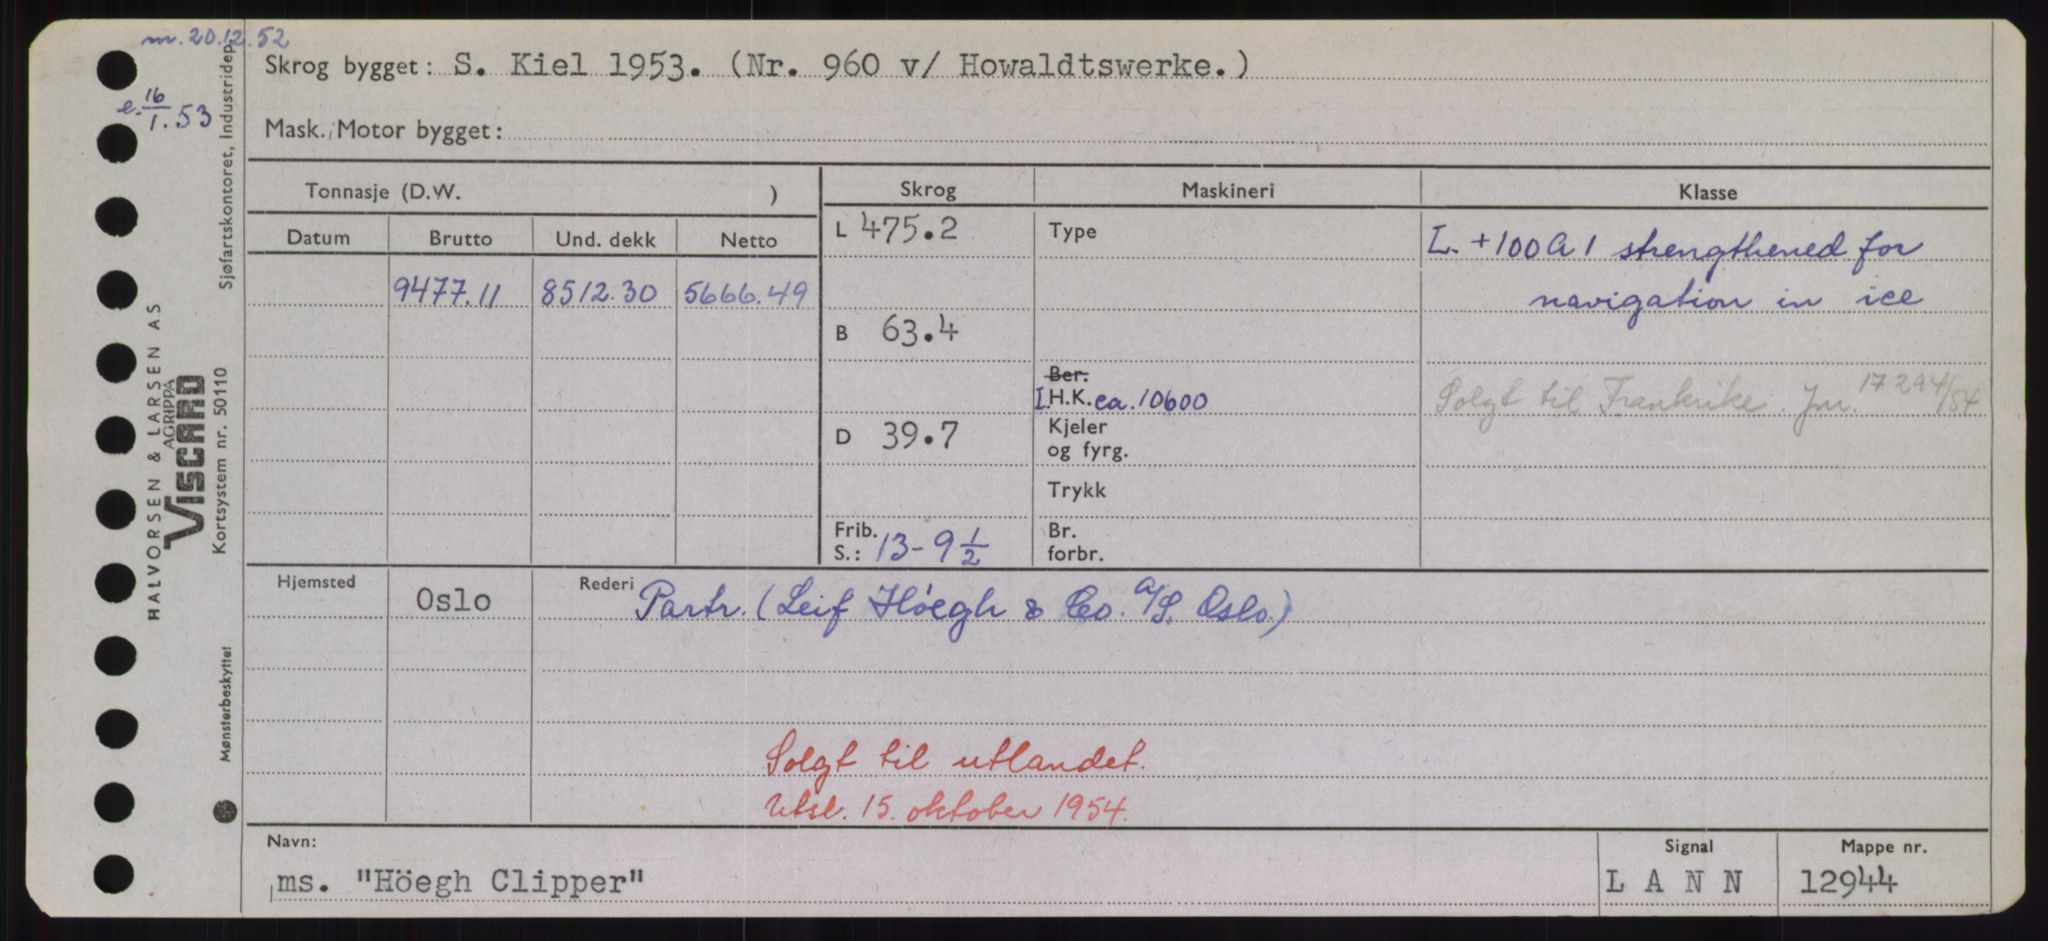 m. 20.12.52
Skrog bygget: S. Kiel 1953. (Nr. 960 v/ Howaldtswerke.)
e. 16/1.53
Mask./Motor bygget:
Tonnasje (D.W. ) Skrog Maskineri Klasse
Datum Brutto Und. dekk Netto L 475.2 Type L. +100 A 1 strengthened for
9477.11 8512.30 5666.49 navigation in ice
B 63.4
Ber.
I.H.K. ca. 10600 Solgt til Frankrike. Jnr. 17294/54
D 39.7 Kjeler
og fyrg.
Trykk
Frib. Br.
S.: 13-9 1/2 forbr.
Hjemsted Oslo Rederi Partr. (Leif Höegh & Co. A/S. Oslo)
Solgt til utlandet.
Utsl. 15. oktober 1954.
Navn: Signal Mappe nr.
ms. "Höegh Clipper" L A N N 12944
HALVORSEN & LARSEN AS
AGRIPPA
VISCARD
Kortsystem nr. 50110
Sjøfartskontoret, Industridep.
Mønsterbeskyttet